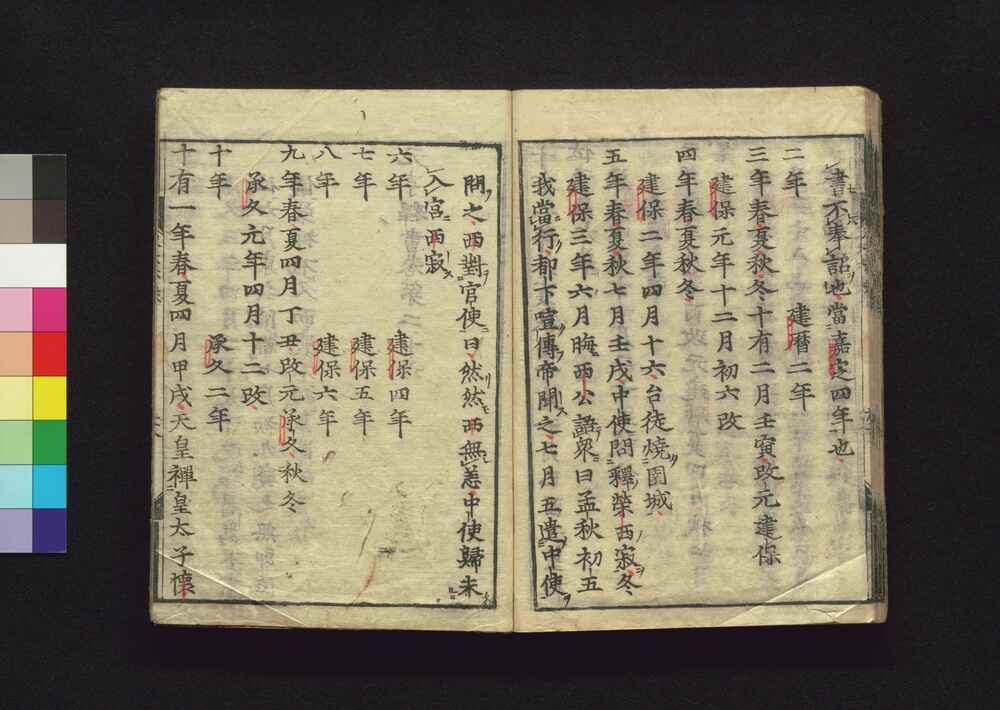 書不奉詔也當嘉定四年也
二年　建暦二年
三年春夏秋冬十有二月壬寅改元建保
建保元年十二月初六改
四年春夏秋冬
建保二年四月十六台徒燒園城
五年春夏秋七月壬戌中使問釋榮西寂冬
建保三年六月晦西公謁衆曰孟秋初五
我當行都下喧傳帝聞之七月五遣中使
問之西對官使曰然然西無恙中使歸未
入宮西寂
六年　建保四年
七年　建保五年
八年　建保六年
九年春夏四月丁丑改元承久秋冬
承久元年四月十二改
十年　承久二年
十有一年春夏四月甲戌天皇禪皇太子懷